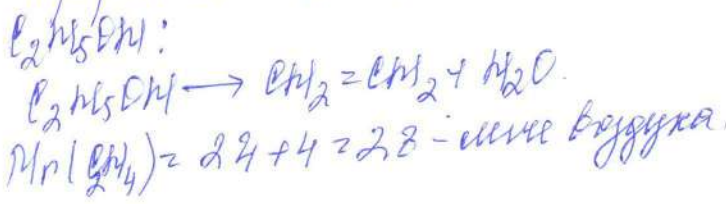 C₂H₅OH:
C₂H₅OH → CH₂=CH₂ + H₂O.
Mr(C₂H₄) = 24 + 4 = 28 - легче воздуха.